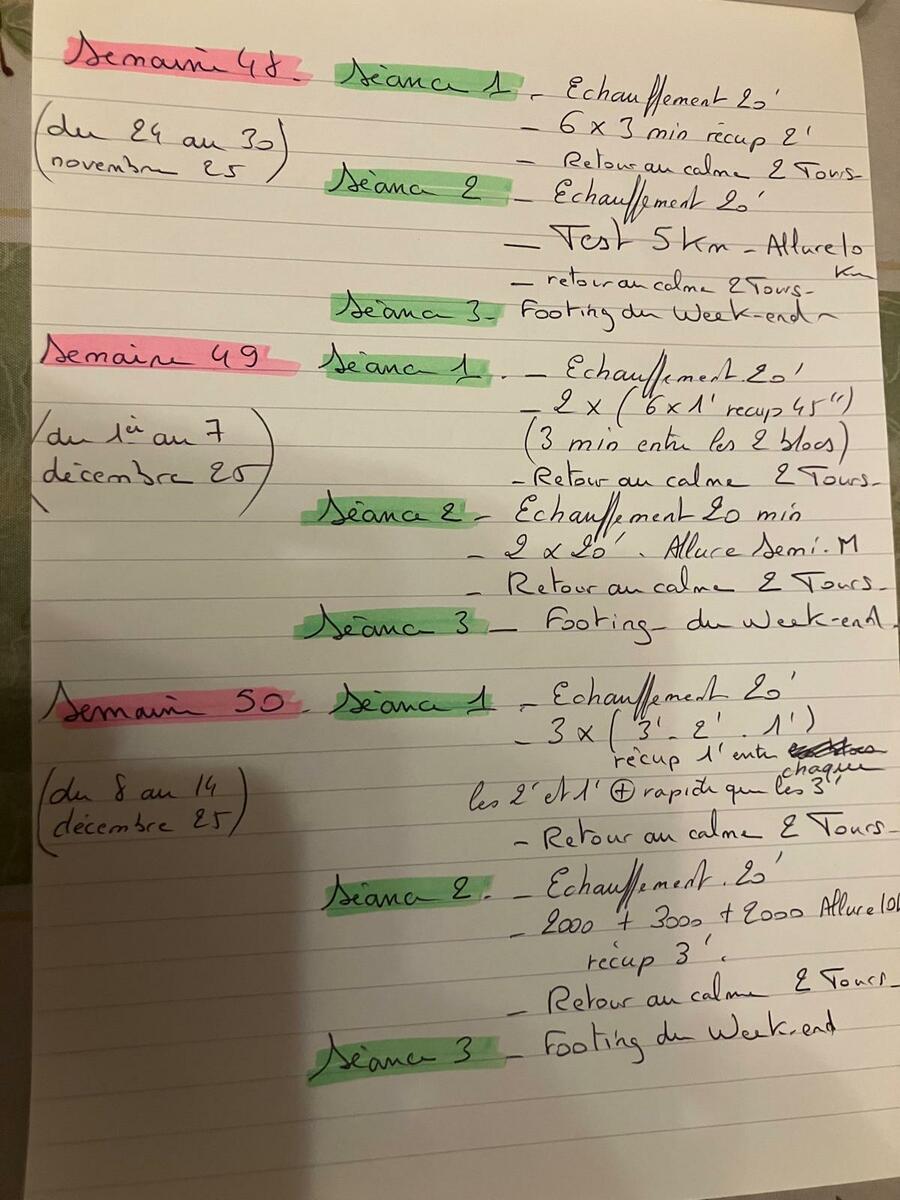 Semaine 48. Séance 1 - Echauffement 20'
(du 24 au 30 - 6 x 3 min récup 2'
novembre 25) - Retour au calme 2 Tours-
Séance 2 - Echauffement 20'
- Test 5 Km - Allure 10
Km
- retour au calme 2 Tours-
Séance 3- Footing du Week-end-
Semaine 49 Séance 1. - Echauffement 20'
- 2 x (6 x 1' récup 45")
(du 1er au 7 (3 min entre les 2 blocs)
décembre 25) - Retour au calme 2 Tours-
Séance 2 - Echauffement 20 min
- 2 x 20'. Allure Semi.M
- Retour au calme 2 Tours-
Séance 3 - Footing du Week-end.
Semaine 50. Séance 1 - Echauffement 20'
- 3 x (3'- 2' . 1')
récup 1' entre
chaque
(du 8 au 14 les 2' et 1' ⊕ rapide que les 3'
décembre 25) - Retour au calme 2 Tours-
Séance 2. - Echauffement. 20'
- 2000 + 3000 + 2000 Allure 10
récup 3'.
- Retour au calme 2 Tours-
Séance 3 - Footing du Week-end